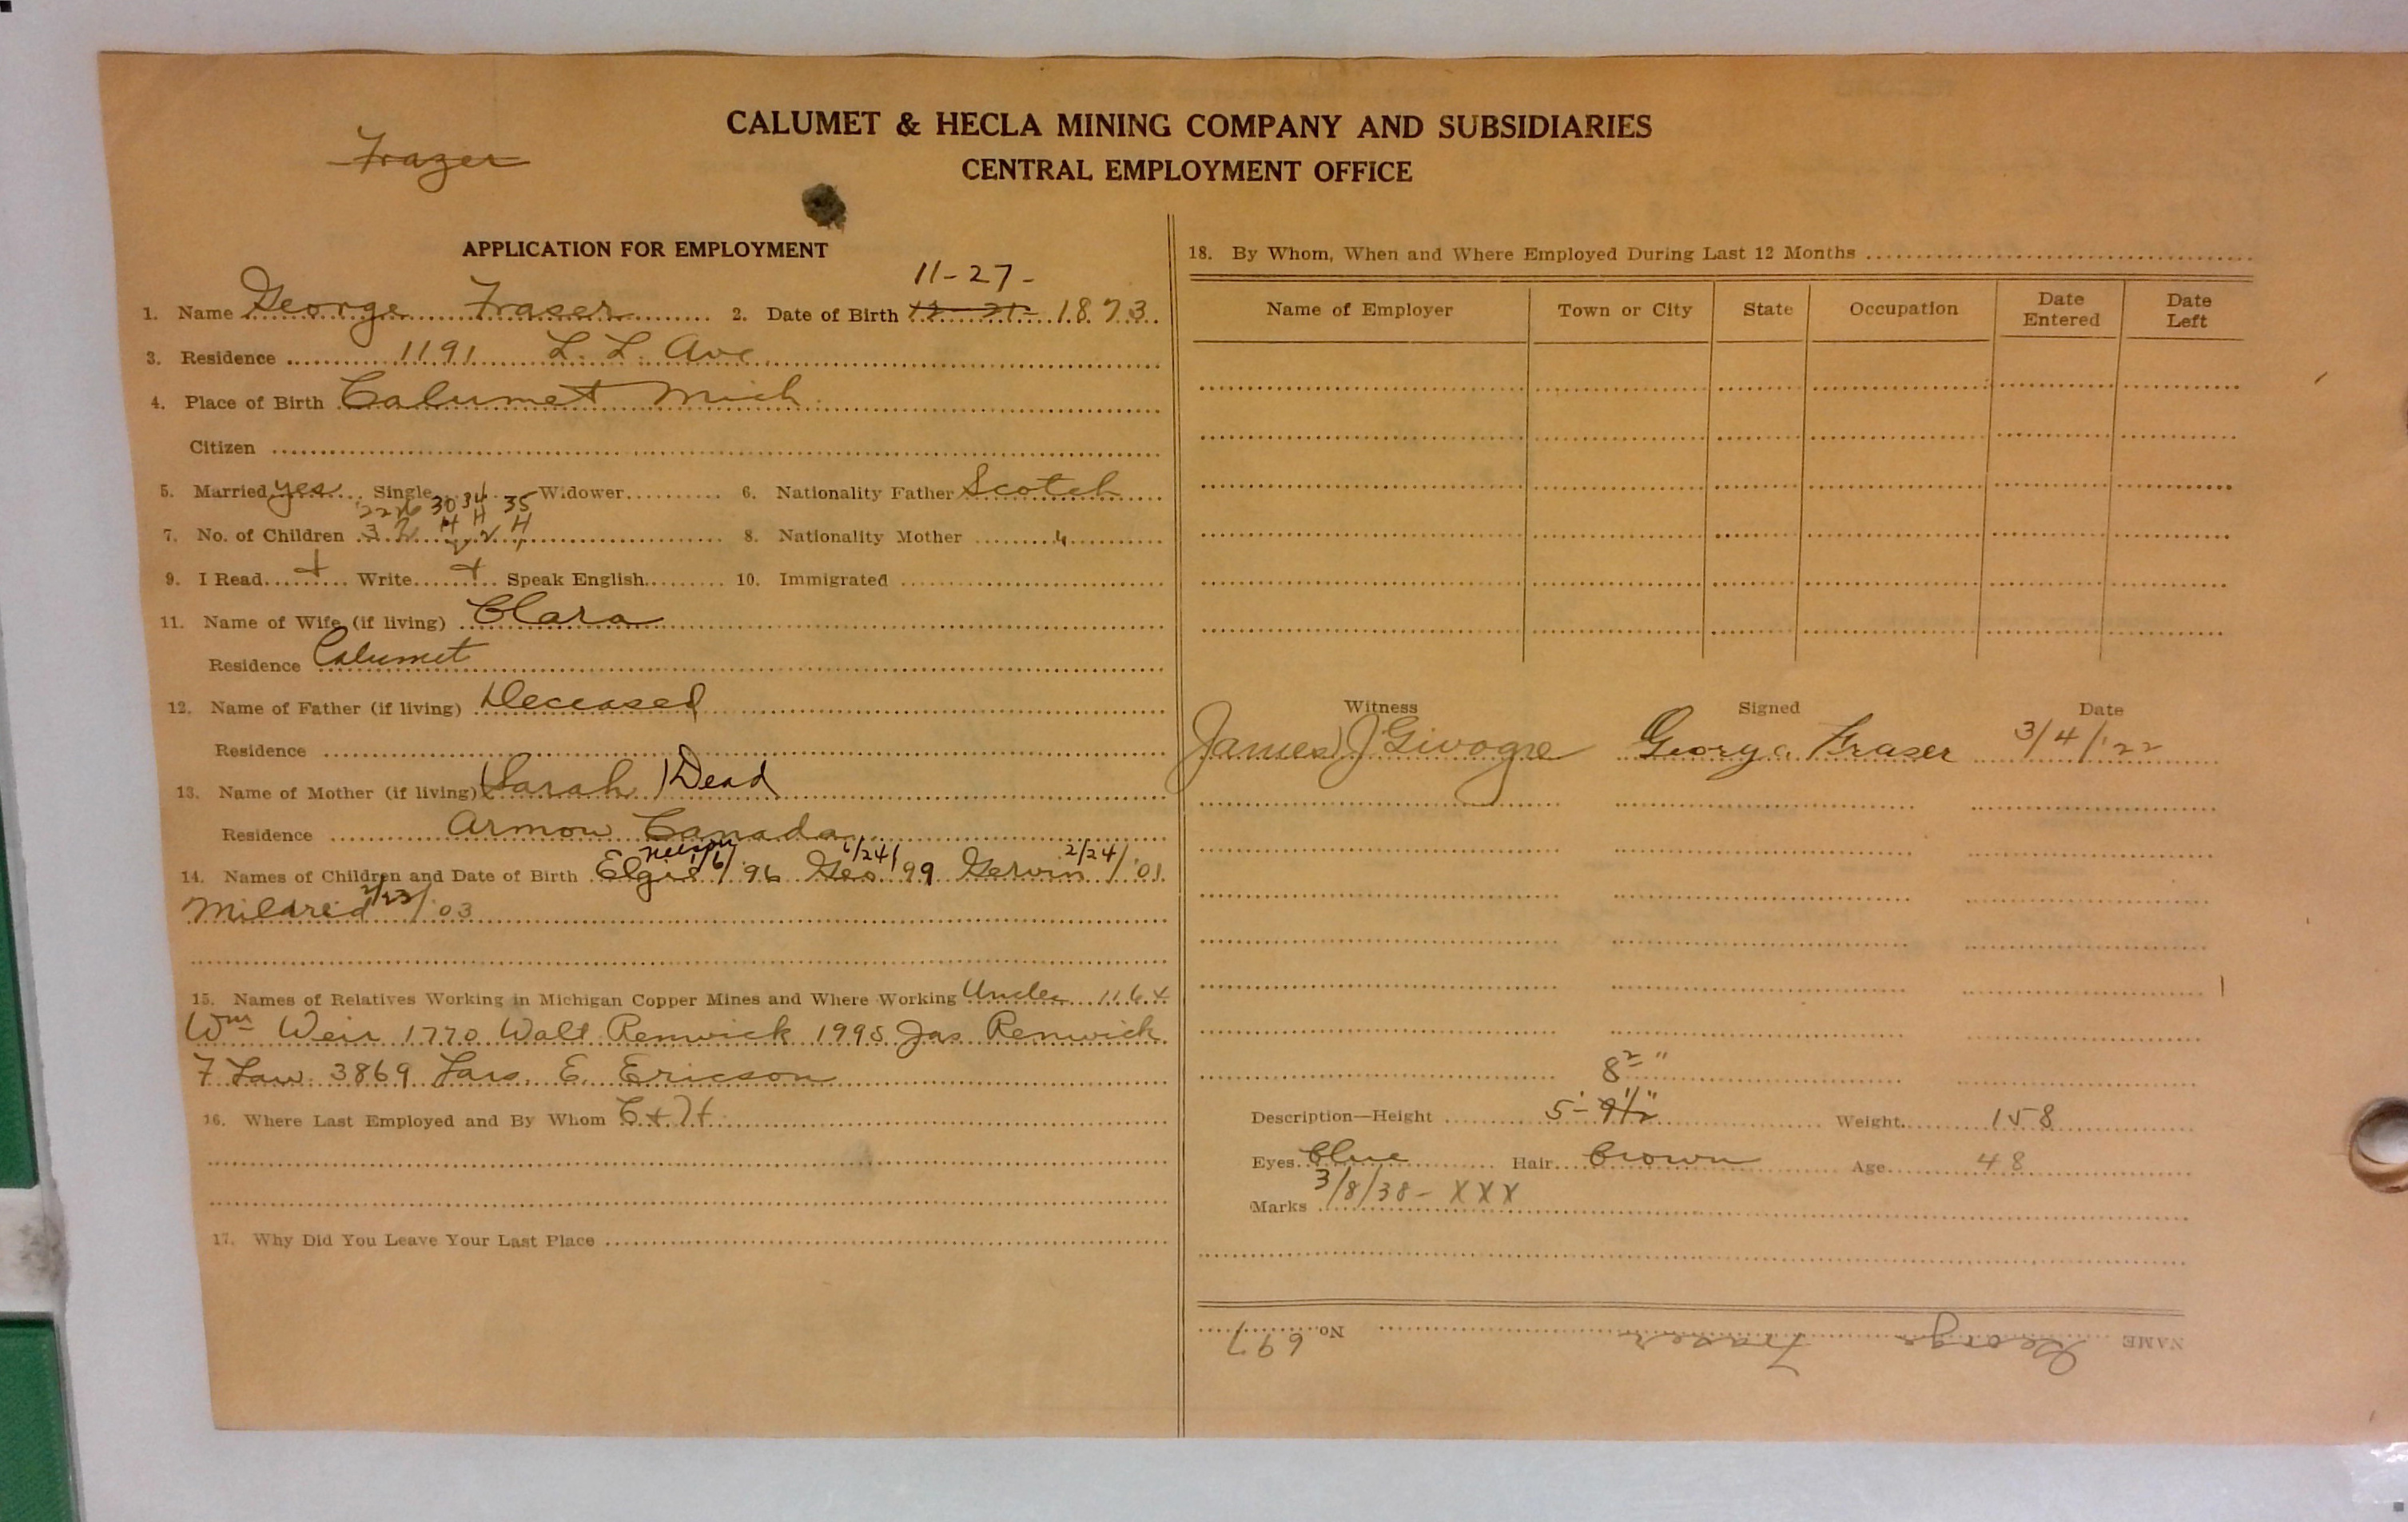 CALUMET & HECLA MINING COMPANY AND SUBSIDIARIES
Frazer
CENTRAL EMPLOYMENT OFFICE
APPLICATION FOR EMPLOYMENT
11-27-
1. Name George Fraser 2. Date of Birth 1873
3. Residence 1191 L. L. Ave
4. Place of Birth Calumet Mich
Citizen
5. Married yes Single Widower 6. Nationality Father Scotch
22 26 30 34 35
7. No. of Children 3 8. Nationality Mother "
9. I Read + Write + Speak English 10. Immigrated
11. Name of Wife (if living) Clara
Residence Calumet
12. Name of Father (if living) Deceased
Residence
13. Name of Mother (if living) (Sarah) Dead
Residence Armow Canada
Nelson
14. Names of Children and Date of Birth 1/6/96 Geo 6/24/99 Gervin 2/24/'01
Mildred 2/23/'03
15. Names of Relatives Working in Michigan Copper Mines and Where Working Uncles 1164
Wm Weir 1770 Walt Renwick 1995 Jas Renwick
F Law 3869 Lars. E. Ericson
16. Where Last Employed and By Whom C+H
17. Why Did You Leave Your Last Place
18. By Whom, When and Where Employed During Last 12 Months
Name of Employer Town or City State Occupation Date Entered Date Left
Witness Signed Date
James J George Fraser 3/4/'22
8 2"
Description—Height 5'-9 1/2" Weight 158
Eyes Blue Hair Brown Age 48
3/8/38- XXX
Marks
NAME George Fraser No. 697